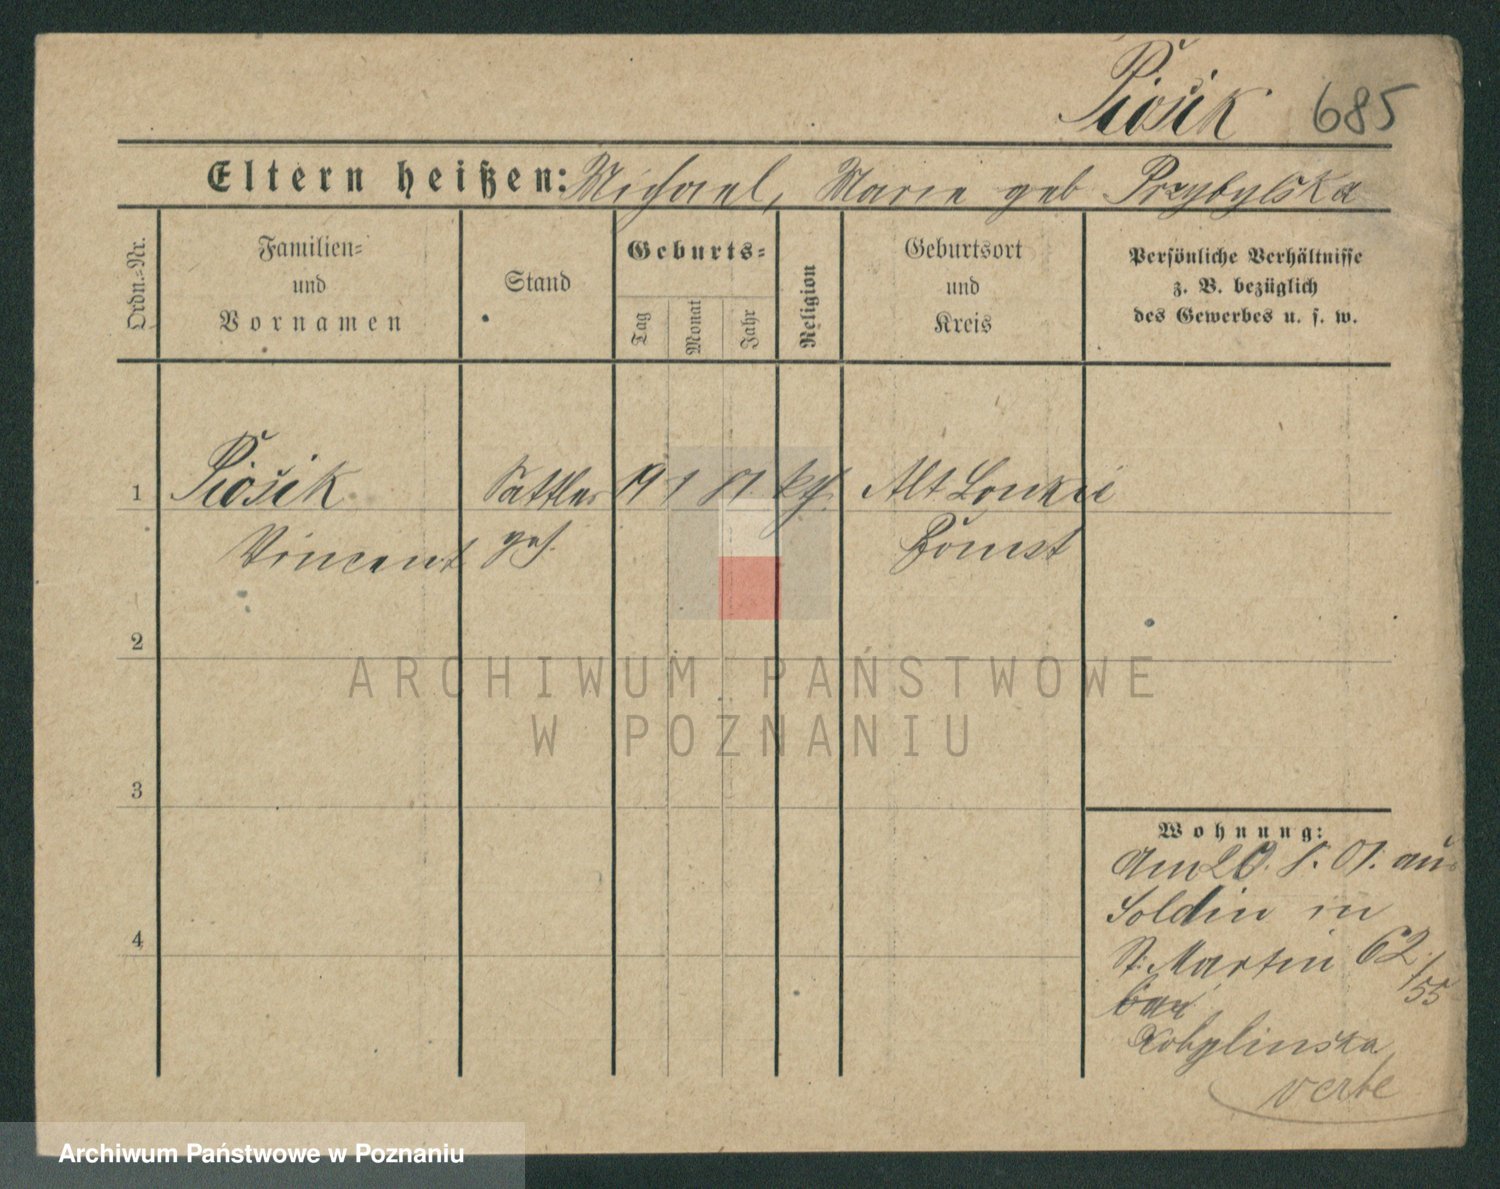 Piosik 685
Eltern heißen: Michael, Marie geb Przybylska
Ordn.-Nr.
Familien-
und
Vornamen
Stand
Geburts-
Tag
Monat
Jahr
Religion
Geburtsort
und
Kreis
Persönliche Verhältnisse
z. B. bezüglich
des Gewerbes u. s. w.
1 Piosik Sattler 19 1 kth. Alt
Vincent ges. Bomst
2
3
4
Wohnung:
Am 20. 01. aus
Soldin in
St. Martin 62/55
bei
Kobylinska
verte
ARCHIWUM PAŃSTWOWE
W POZNANIU
Archiwum Państwowe w Poznaniu